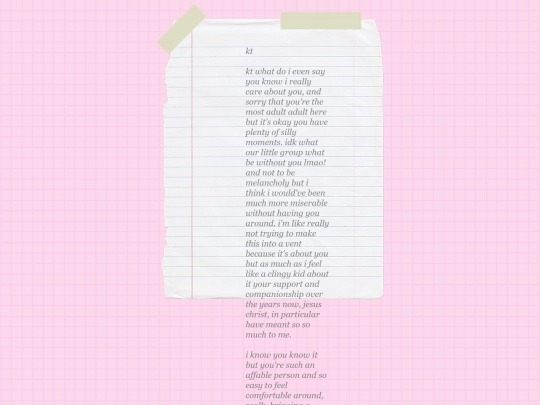 kt
kt what do i even say
you know i really
care about you, and
sorry that you're the
most adult adult here
but it's okay you have
plenty of silly
moments. idk what
our little group what
be without you lmao!
and not to be
melancholy but i
think i would've been
much more miserable
without having you
around. i'm like really
not trying to make
this into a vent
because it's about you
but as much as i feel
like a clingy kid about
it your support and
companionship over
the years now, jesus
christ, in particular
have meant so so
much to me.
i know you know it
but you're such an
affable person and so
easy to feel
comfortable around,
really bringing a